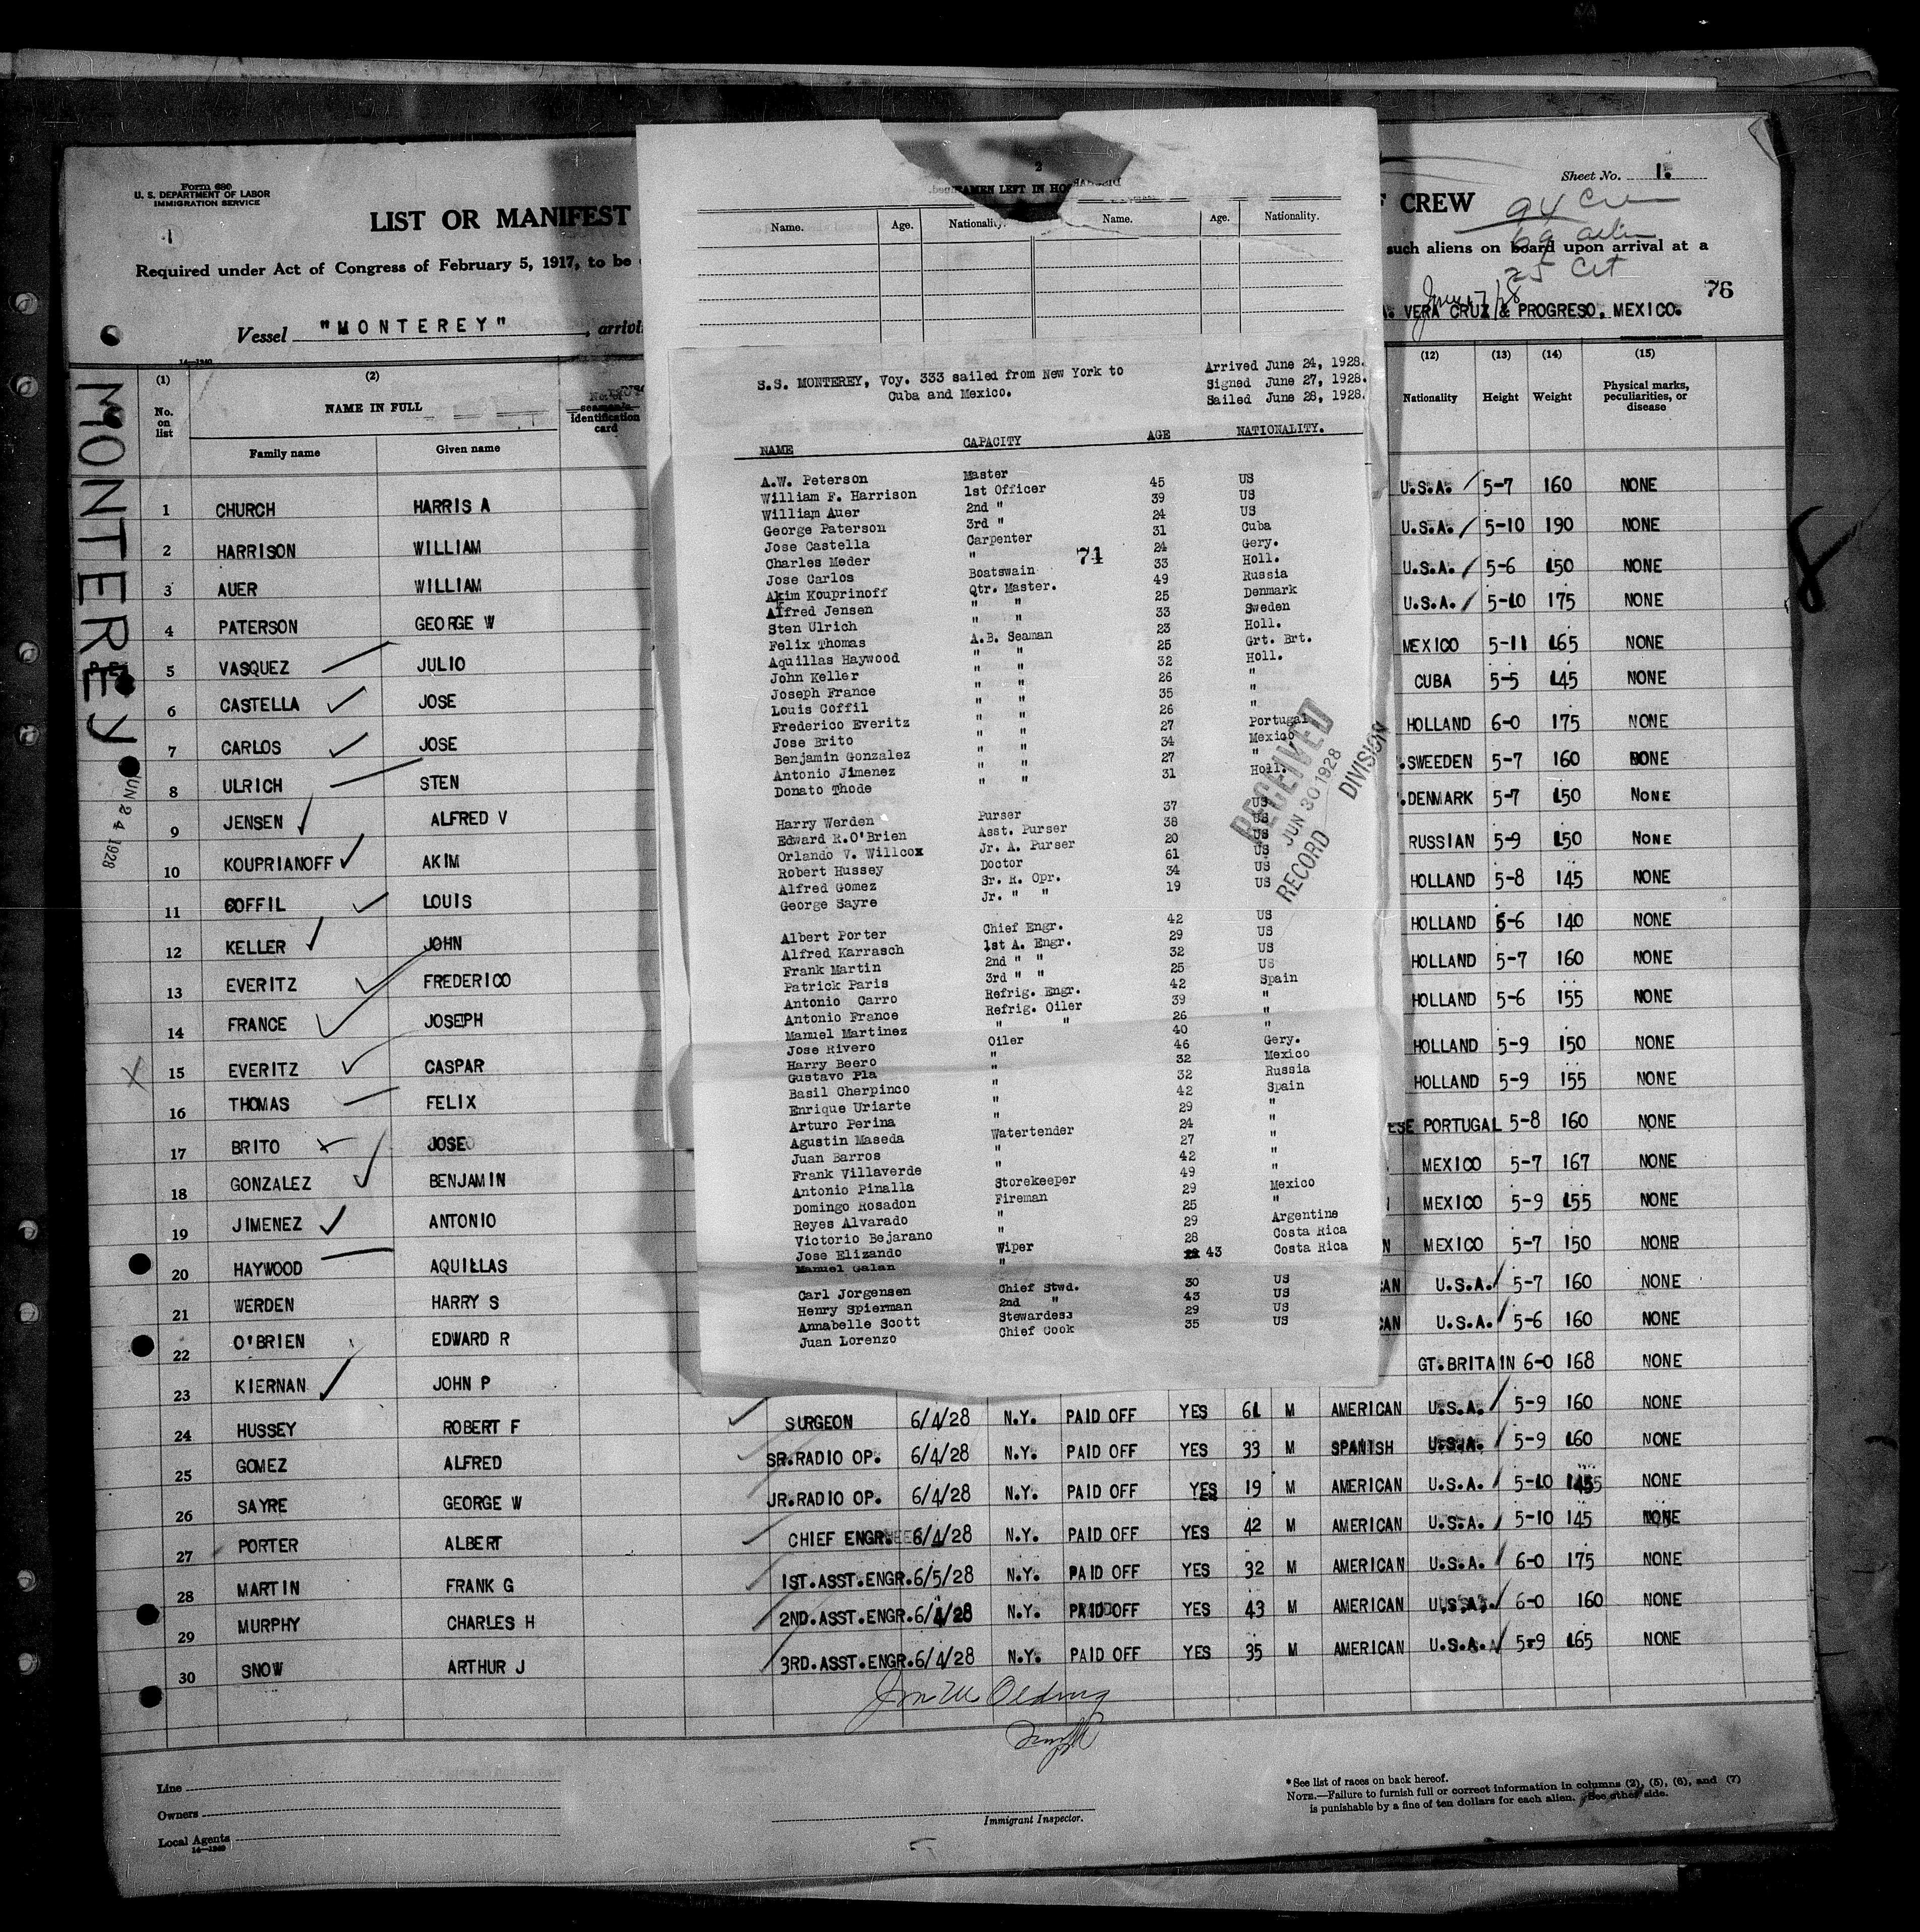 Form 680
U. S. DEPARTMENT OF LABOR
IMMIGRATION SERVICE
1
LIST OR MANIFEST
CREW
Sheet No. 1.
94 Crew
69 alien
25 Cit
Required under Act of Congress of February 5, 1917, to be
such aliens on board upon arrival at a
76
Vessel "MONTEREY", arrivi
VERA CRUZ & PROGRESO. MEXICO.
MONTEREY
JUN 24 1928
8
2
SEAMEN LEFT IN HOS
Name. Age. Nationality. Name. Age. Nationality.
S.S. MONTEREY, Voy. 333 sailed from New York to
Cuba and Mexico.
Arrived June 24, 1928.
Signed June 27, 1928.
Sailed June 28, 1928.
NAME CAPACITY AGE NATIONALITY.
A.W. Peterson Master 45 US
William F. Harrison 1st Officer 39 US
William Auer 2nd " 24 US
George Paterson 3rd " 31 Cuba
Jose Castella Carpenter 24 Gery.
Charles Meder " 33 Holl.
71
Jose Carlos Boatswain 49 Russia
Akim Kouprinoff Qtr. Master. 25 Denmark
Alfred Jensen " " 33 Sweden
Sten Ulrich " " 23 Holl.
Felix Thomas A.B. Seaman 25 Grt. Brt.
Aquillas Haywood " " 32 Holl.
John Keller " " 26 "
Joseph France " " 35 "
Louis Coffil " " 26 "
Frederico Everitz " " 27 Portugal
Jose Brito " " 34 Mexico
Benjamin Gonzalez " " 27 "
Antonio Jimenez " " 31 Holl.
Donato Thode " "
Harry Werden Purser 37 US
Edward R.O'Brien Asst. Purser 38 US
Orlando V. Willcox Jr. A. Purser 20 US
Robert Hussey Doctor 61 US
Alfred Gomez Sr. R. Opr. 34 US
George Sayre Jr. " " 19 US
Albert Porter Chief Engr. 42 US
Alfred Karrasch 1st A. Engr. 29 US
Frank Martin 2nd " " 32 US
Patrick Paris 3rd " " 25 US
Antonio Carro Refrig. Engr. 42 Spain
Antonio France Refrig. Oiler 39 "
Manuel Martinez " " 26 "
Jose Rivero Oiler 40 "
Harry Beero " 46 Gery.
Gustavo Pla " 32 Mexico
Basil Cherpinco " 32 Russia
Enrique Uriarte " 42 Spain
Arturo Perina " 29 "
Agustin Maseda Watertender 24 "
Juan Barros " 27 "
Frank Villaverde " 42 "
Antonio Pinalla Storekeeper 49 "
Domingo Rosadon Fireman 29 Mexico
Reyes Alvarado " 25 "
Victorio Bejarano " 29 Argentine
Jose Elizando Wiper 28 Costa Rica
Manuel Galan " 43 Costa Rica
Carl Jorgensen Chief Stwd. 30 US
Henry Spierman 2nd " 43 US
Annabelle Scott Stewardess 29 US
Juan Lorenzo Chief Cook 35 US
RECEIVED
JUN 30 1928
RECORD DIVISION
(1) (2) (12) (13) (14) (15)
No. on list NAME IN FULL identification card Nationality Height Weight Physical marks, peculiarities, or disease
Family name Given name
1 CHURCH HARRIS A U.S.A. 5-7 160 NONE
2 HARRISON WILLIAM U.S.A. 5-10 190 NONE
3 AUER WILLIAM U.S.A. 5-6 150 NONE
4 PATERSON GEORGE W U.S.A. 5-10 175 NONE
5 VASQUEZ JULIO MEXICO 5-11 165 NONE
6 CASTELLA JOSE CUBA 5-5 145 NONE
7 CARLOS JOSE HOLLAND 6-0 175 NONE
8 ULRICH STEN SWEEDEN 5-7 160 NONE
9 JENSEN ALFRED V DENMARK 5-7 150 NONE
10 KOUPRIANOFF AKIM RUSSIAN 5-9 150 NONE
11 COFFIL LOUIS HOLLAND 5-8 145 NONE
12 KELLER JOHN HOLLAND 5-6 140 NONE
13 EVERITZ FREDERICO HOLLAND 5-7 160 NONE
14 FRANCE JOSEPH HOLLAND 5-6 155 NONE
15 EVERITZ CASPAR HOLLAND 5-9 150 NONE
16 THOMAS FELIX HOLLAND 5-9 155 NONE
17 BRITO JOSE ESE PORTUGAL 5-8 160 NONE
18 GONZALEZ BENJAMIN MEXICO 5-7 167 NONE
19 JIMENEZ ANTONIO MEXICO 5-9 155 NONE
20 HAYWOOD AQUILLAS N MEXICO 5-7 150 NONE
21 WERDEN HARRY S CAN U.S.A. 5-7 160 NONE
22 O'BRIEN EDWARD R CAN U.S.A. 5-6 160 NONE
23 KIERNAN JOHN P GT.BRITAIN 6-0 168 NONE
24 HUSSEY ROBERT F SURGEON 6/4/28 N.Y. PAID OFF YES 61 M AMERICAN U.S.A. 5-9 160 NONE
25 GOMEZ ALFRED SR.RADIO OP. 6/4/28 N.Y. PAID OFF YES 33 M SPANISH U.S.A. 5-9 160 NONE
26 SAYRE GEORGE W JR.RADIO OP. 6/4/28 N.Y. PAID OFF YES 19 M AMERICAN U.S.A. 5-10 NONE
27 PORTER ALBERT CHIEF ENGR. 6/4/28 N.Y. PAID OFF YES 42 M AMERICAN U.S.A. 5-10 145 NONE
28 MARTIN FRANK G 1ST.ASST.ENGR. 6/5/28 N.Y. PAID OFF YES 32 M AMERICAN U.S.A. 6-0 175 NONE
29 MURPHY CHARLES H 2ND.ASST.ENGR. 6/4/28 N.Y. PAID OFF YES 43 M AMERICAN U.S.A. 6-0 160 NONE
30 SNOW ARTHUR J 3RD.ASST.ENGR. 6/4/28 N.Y. PAID OFF YES 35 M AMERICAN U.S.A. 5-9 165 NONE
Line
Owners
Local Agents
14-1240
Immigrant Inspector.
*See list of races on back hereof.
NOTE.—Failure to furnish full or correct information in columns (2), (5), (6), and (7)
is punishable by a fine of ten dollars for each alien. See other side.